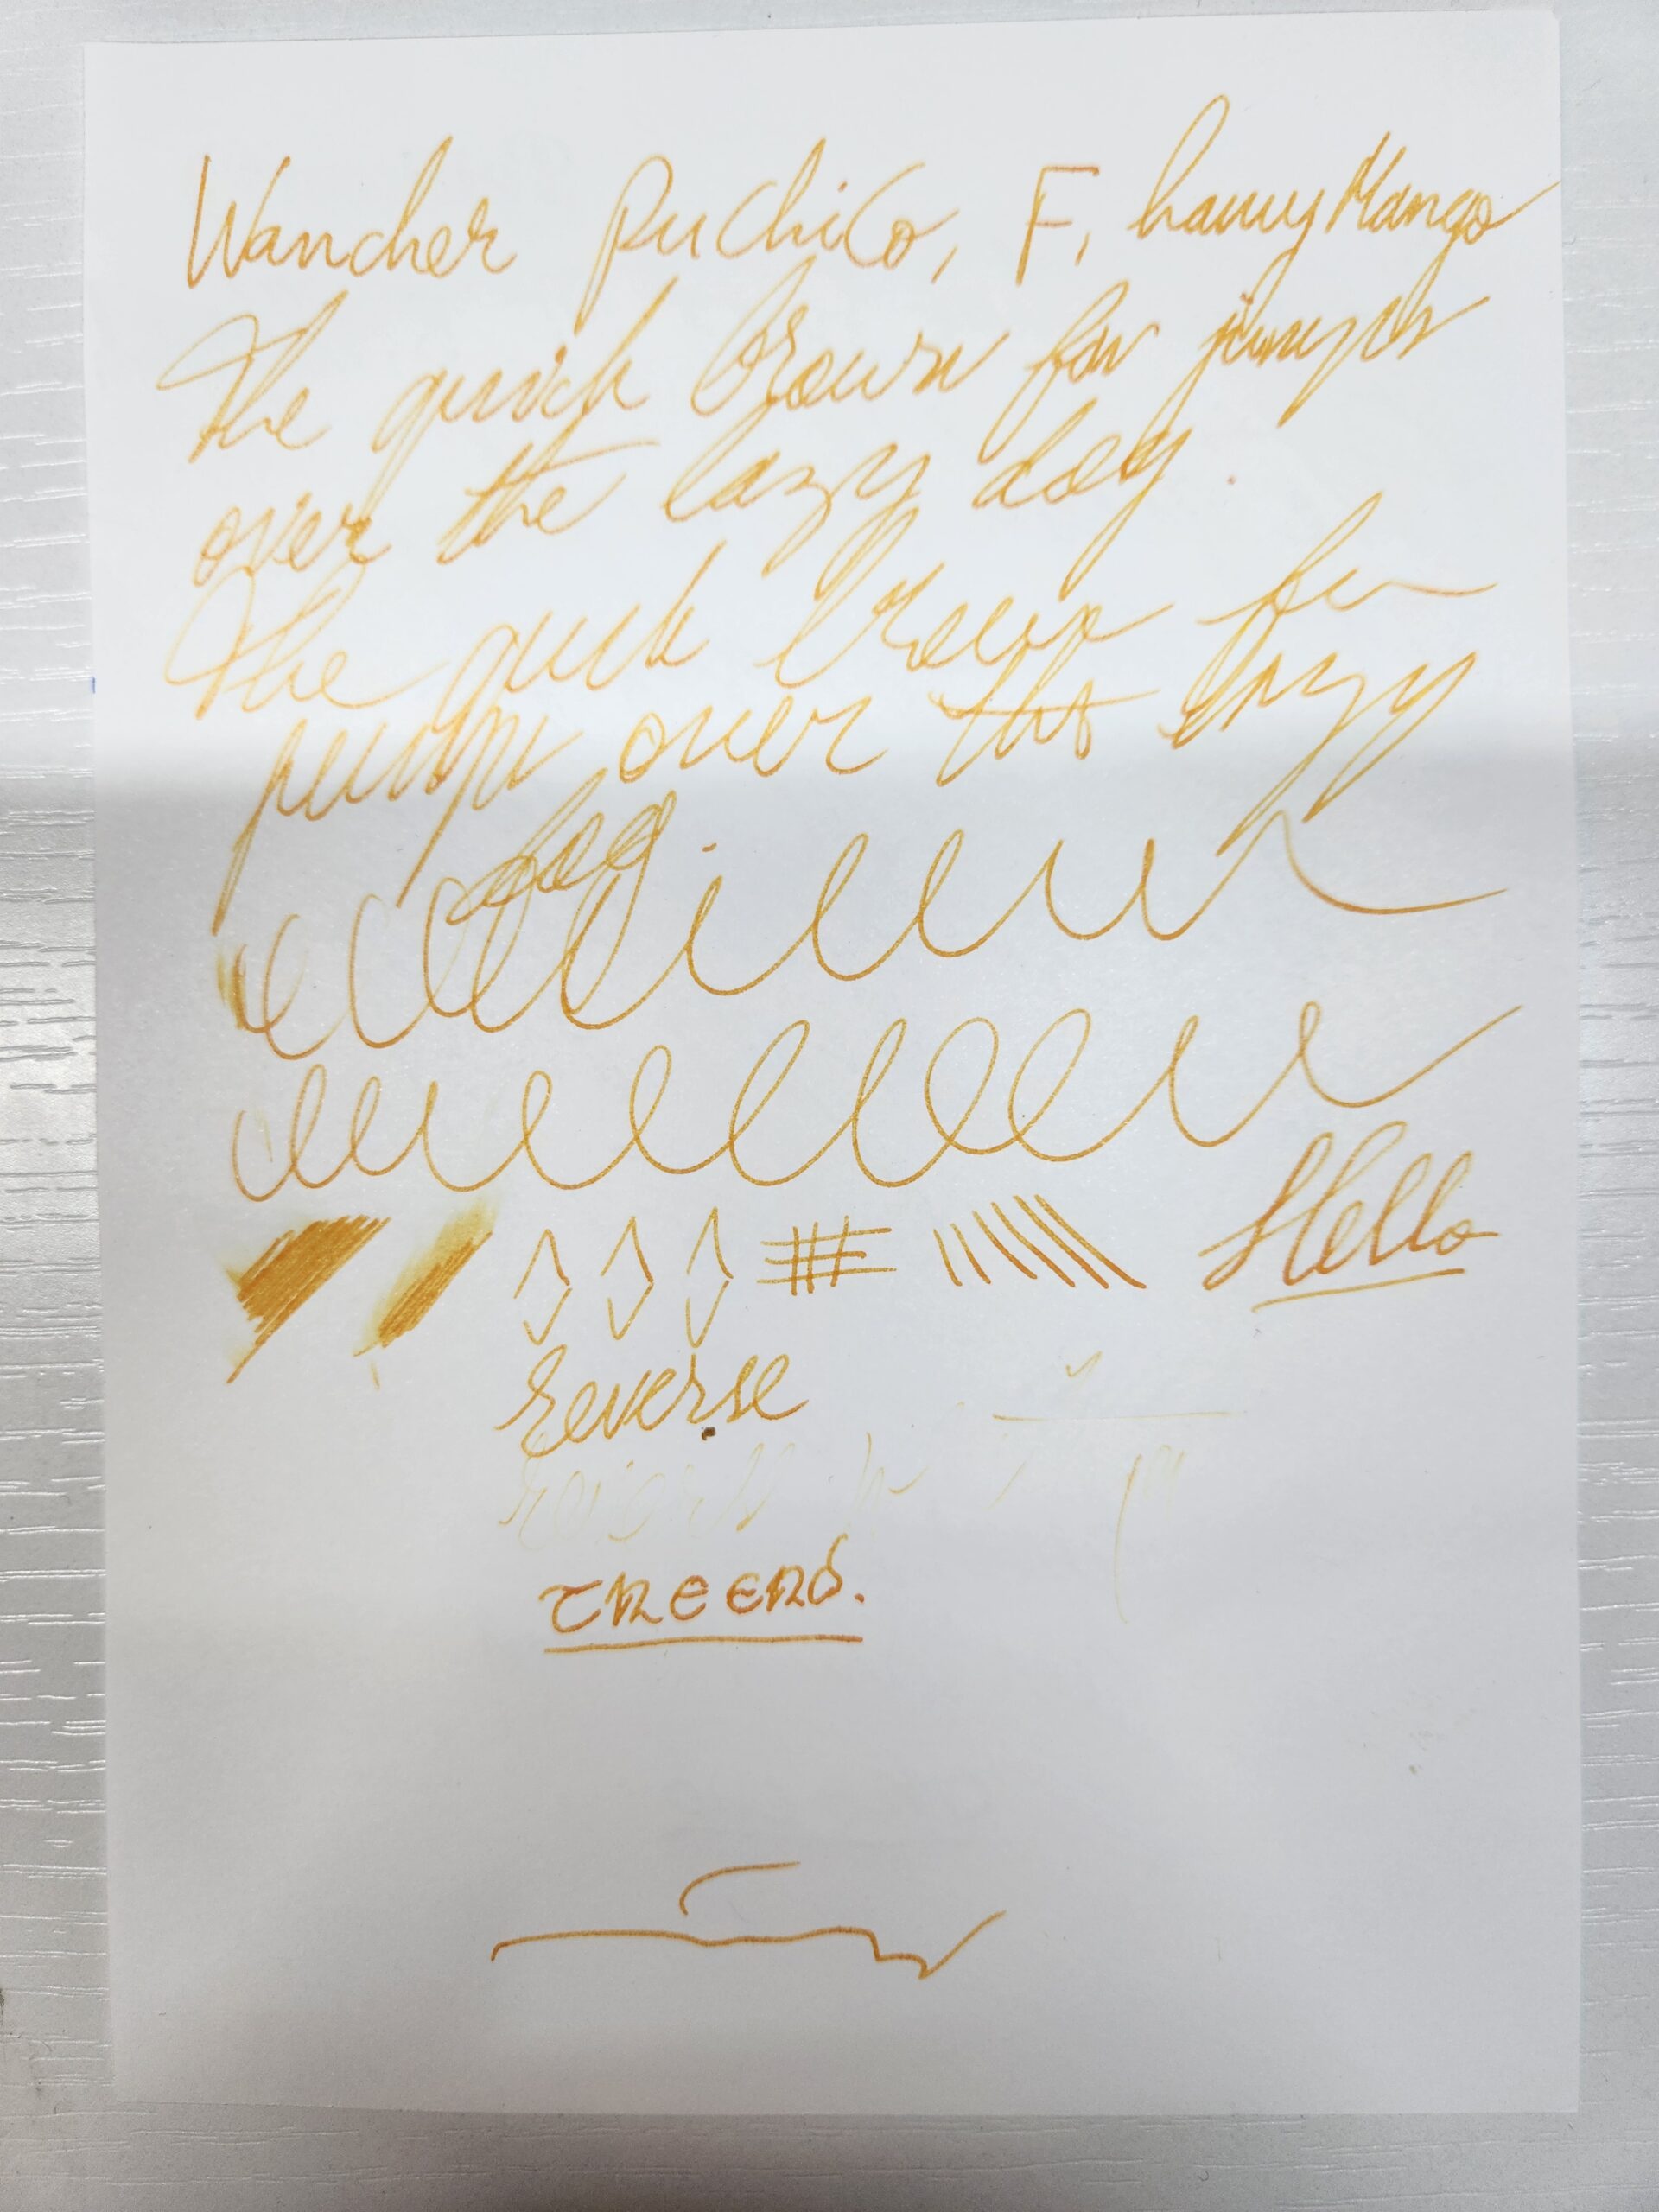 Wancher Puchico, F, Mango
The quick brown fox jumps
over the lazy dog.
The quick brown fox
jumps over the lazy
dog.
Hello
Reverse
the end.